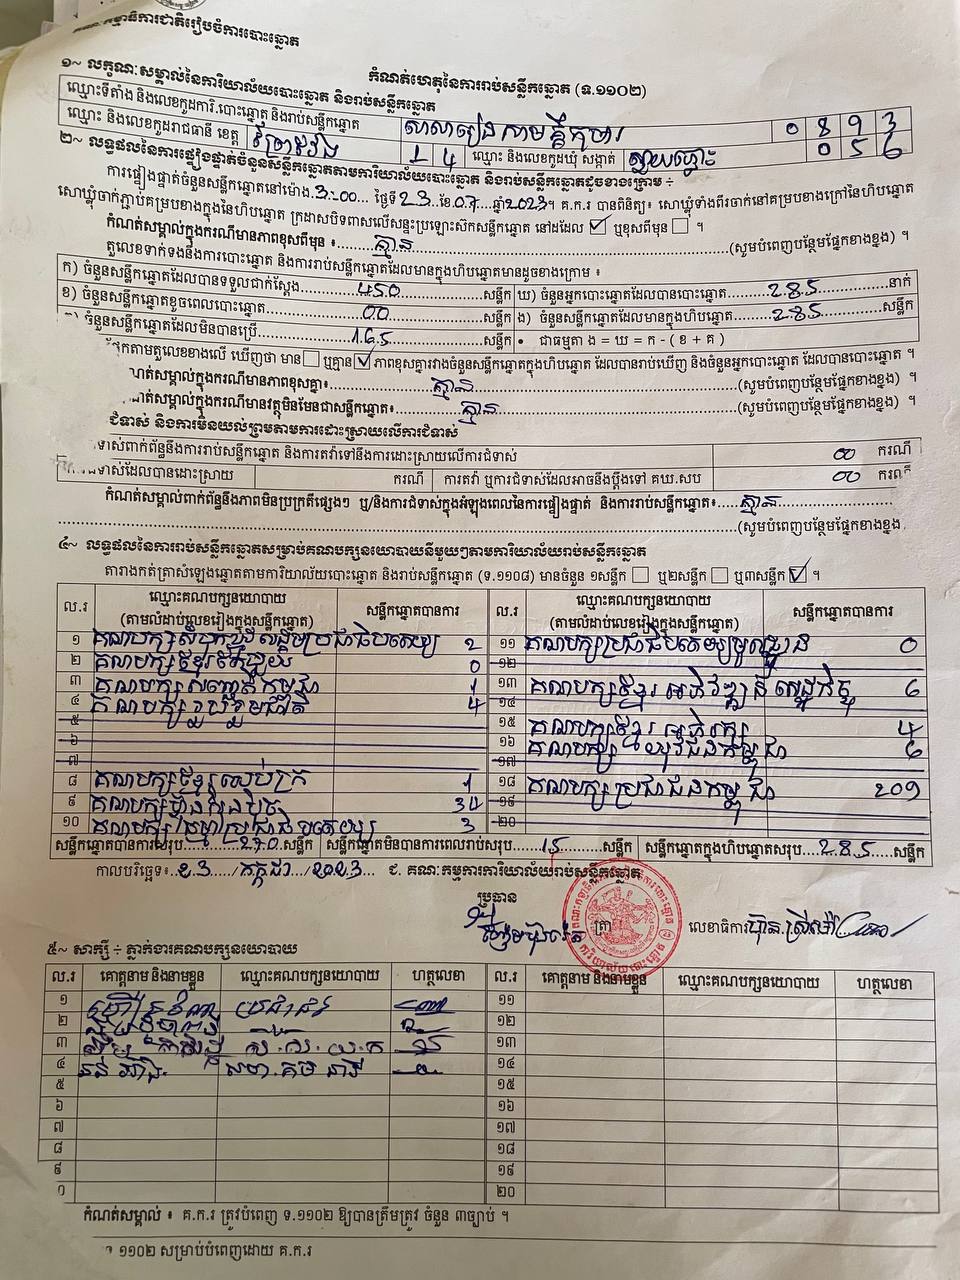 គណៈកម្មាធិការជាតិរៀបចំការបោះឆ្នោត
កំណត់ហេតុនៃការរាប់សន្លឹកឆ្នោត (ទ.១១០២)
១~ លក្ខណៈសម្គាល់នៃការិយាល័យបោះឆ្នោត និងរាប់សន្លឹកឆ្នោត
ឈ្មោះទីតាំង និងលេខកូដការិ.បោះឆ្នោត និងរាប់សន្លឹកឆ្នោត សាលារៀនសាមគ្គីកុមារ 0 8 9 3
ឈ្មោះ និងលេខកូដរាជធានី ខេត្ត ព្រៃវែង 1 4 ឈ្មោះ និងលេខកូដឃុំ សង្កាត់ ស្វាយ 0 5 6
២~ លទ្ធផលនៃការផ្ទៀងផ្ទាត់ចំនួនសន្លឹកឆ្នោតតាមការិយាល័យបោះឆ្នោត និងរាប់សន្លឹកឆ្នោតដូចខាងក្រោម ÷
ការផ្ទៀងផ្ទាត់ចំនួនសន្លឹកឆ្នោតនៅម៉ោង 3:00 ថ្ងៃទី 23 ខែ 07 ឆ្នាំ 2023។ គ.ក.រ បានពិនិត្យ៖ សោឃ្លុំទាំងពីរចាក់នៅគម្របខាងក្រៅនៃហិបឆ្នោត
សោឃ្លុំចាក់ភ្ជាប់គម្របខាងក្នុងនៃហិបឆ្នោត ក្រដាសបិទពាសលើសន្ទះប្រឡោះស៊កសន្លឹកឆ្នោត នៅដដែល ☑ ឬខុសពីមុន ☐ ។
កំណត់សម្គាល់ក្នុងករណីមានភាពខុសពីមុន ៖ គ្មាន (សូមបំពេញបន្ថែមផ្នែកខាងខ្នង) ។
តួលេខទាក់ទងនឹងការបោះឆ្នោត និងការរាប់សន្លឹកឆ្នោតដែលមានក្នុងហិបឆ្នោតមានដូចខាងក្រោម ៖
ក) ចំនួនសន្លឹកឆ្នោតដែលបានទទួលជាក់ស្តែង 450 សន្លឹក ឃ) ចំនួនអ្នកបោះឆ្នោតដែលបានបោះឆ្នោត 285 នាក់
ខ) ចំនួនសន្លឹកឆ្នោតខូចពេលបោះឆ្នោត 00 សន្លឹក ង) ចំនួនសន្លឹកឆ្នោតដែលមានក្នុងហិបឆ្នោត 285 សន្លឹក
ចំនួនសន្លឹកឆ្នោតដែលមិនបានប្រើ 165 សន្លឹក • ជាធម្មតា ង = ឃ = ក - ( ខ + គ )
ផ្អែកតាមតួលេខខាងលើ ឃើញថា មាន ☐ ឬគ្មាន ☑ ភាពខុសគ្នារវាងចំនួនសន្លឹកឆ្នោតក្នុងហិបឆ្នោត ដែលបានរាប់ឃើញ និងចំនួនអ្នកបោះឆ្នោត ដែលបានបោះឆ្នោត ។
ណត់សម្គាល់ក្នុងករណីមានភាពខុសគ្នា៖ គ្មាន (សូមបំពេញបន្ថែមផ្នែកខាងខ្នង) ។
ណត់សម្គាល់ក្នុងករណីមានវត្ថុមិនមែនជាសន្លឹកឆ្នោត៖ គ្មាន (សូមបំពេញបន្ថែមផ្នែកខាងខ្នង) ។
ជំទាស់ និងការមិនយល់ព្រមតាមការដោះស្រាយលើការជំទាស់
ទាស់ពាក់ព័ន្ធនឹងការរាប់សន្លឹកឆ្នោត និងការតវ៉ាទៅនឹងការដោះស្រាយលើការជំទាស់ 00 ករណី
ទាស់ដែលបានដោះស្រាយ ករណី ការតវ៉ា ឬការជំទាស់ដែលអាចនឹងប្តឹងទៅ គឃ.សប 00 ករណី
កំណត់សម្គាល់ពាក់ព័ន្ធនឹងភាពមិនប្រក្រតីផ្សេងៗ ឬ/និងការជំទាស់ក្នុងអំឡុងពេលនៃការផ្ទៀងផ្ទាត់ និងការរាប់សន្លឹកឆ្នោត៖ គ្មាន
(សូមបំពេញបន្ថែមផ្នែកខាងខ្នង
៤~ លទ្ធផលនៃការរាប់សន្លឹកឆ្នោតសម្រាប់គណបក្សនយោបាយនីមួយៗតាមការិយាល័យរាប់សន្លឹកឆ្នោត
តារាងកត់ត្រាសំឡេងឆ្នោតតាមការិយាល័យបោះឆ្នោត និងរាប់សន្លឹកឆ្នោត (ទ.១១០៨) មានចំនួន ១សន្លឹក ☐ ឬ២សន្លឹក ☐ ឬ៣សន្លឹក ☑ ។
ល.រ ឈ្មោះគណបក្សនយោបាយ (តាមលំដាប់លេខរៀងក្នុងសន្លឹកឆ្នោត) សន្លឹកឆ្នោតបានការ ល.រ ឈ្មោះគណបក្សនយោបាយ (តាមលំដាប់លេខរៀងក្នុងសន្លឹកឆ្នោត) សន្លឹកឆ្នោតបានការ
១ គណបក្សសំបុកឃ្មុំសង្គមប្រជាធិបតេយ្យ 2 ១១ គណបក្សប្រជាធិបតេយ្យមូលដ្ឋាន 0
២ គណបក្សខ្មែរឯករាជ្យ 0 ១២
៣ គណបក្សសញ្ជាតិកម្ពុជា 1 ១៣ គណបក្សខ្មែរអភិវឌ្ឍន៍សេដ្ឋកិច្ច 6
៤ គណបក្សរួបរួមជាតិ 4 ១៤
៥ ១៥ គណបក្សខ្មែរអភិរក្ស 4
៦ ១៦ គណបក្សយុវជនកម្ពុជា 6
៧ ១៧
៨ គណបក្សខ្មែរឈប់ក្រ 1 ១៨ គណបក្សប្រជាជនកម្ពុជា 209
៩ គណបក្សហ្វ៊ុនស៊ិនប៉ិច 34 ១៩
១០ គណបក្សធម្មាប្រជាធិបតេយ្យ 3 ២០
សន្លឹកឆ្នោតបានការសរុប 270 សន្លឹក សន្លឹកឆ្នោតមិនបានការពេលរាប់សរុប 15 សន្លឹក សន្លឹកឆ្នោតក្នុងហិបឆ្នោតសរុប 285 សន្លឹក
កាលបរិច្ឆេទ៖ 23 / កក្កដា / 2023 ជ. គណៈកម្មការការិយាល័យរាប់សន្លឹកឆ្នោត
ប្រធាន
ត្រា លេខាធិការ
៥~ សាក្សី ÷ ភ្នាក់ងារគណបក្សនយោបាយ
ល.រ គោត្តនាម និងនាមខ្លួន ឈ្មោះគណបក្សនយោបាយ ហត្ថលេខា ល.រ គោត្តនាម និងនាមខ្លួន ឈ្មោះគណបក្សនយោបាយ ហត្ថលេខា
១ ប្រជាជន ១១
២ ១២
៣ ១៣
៤ ១៤
៥ ១៥
៦ ១៦
៧ ១៧
៨ ១៨
៩ ១៩
០ ២០
កំណត់សម្គាល់ ៖ គ.ក.រ ត្រូវបំពេញ ទ.១១០២ ឱ្យបានត្រឹមត្រូវ ចំនួន ៣ច្បាប់ ។
១១០២ សម្រាប់បំពេញដោយ គ.ក.រ